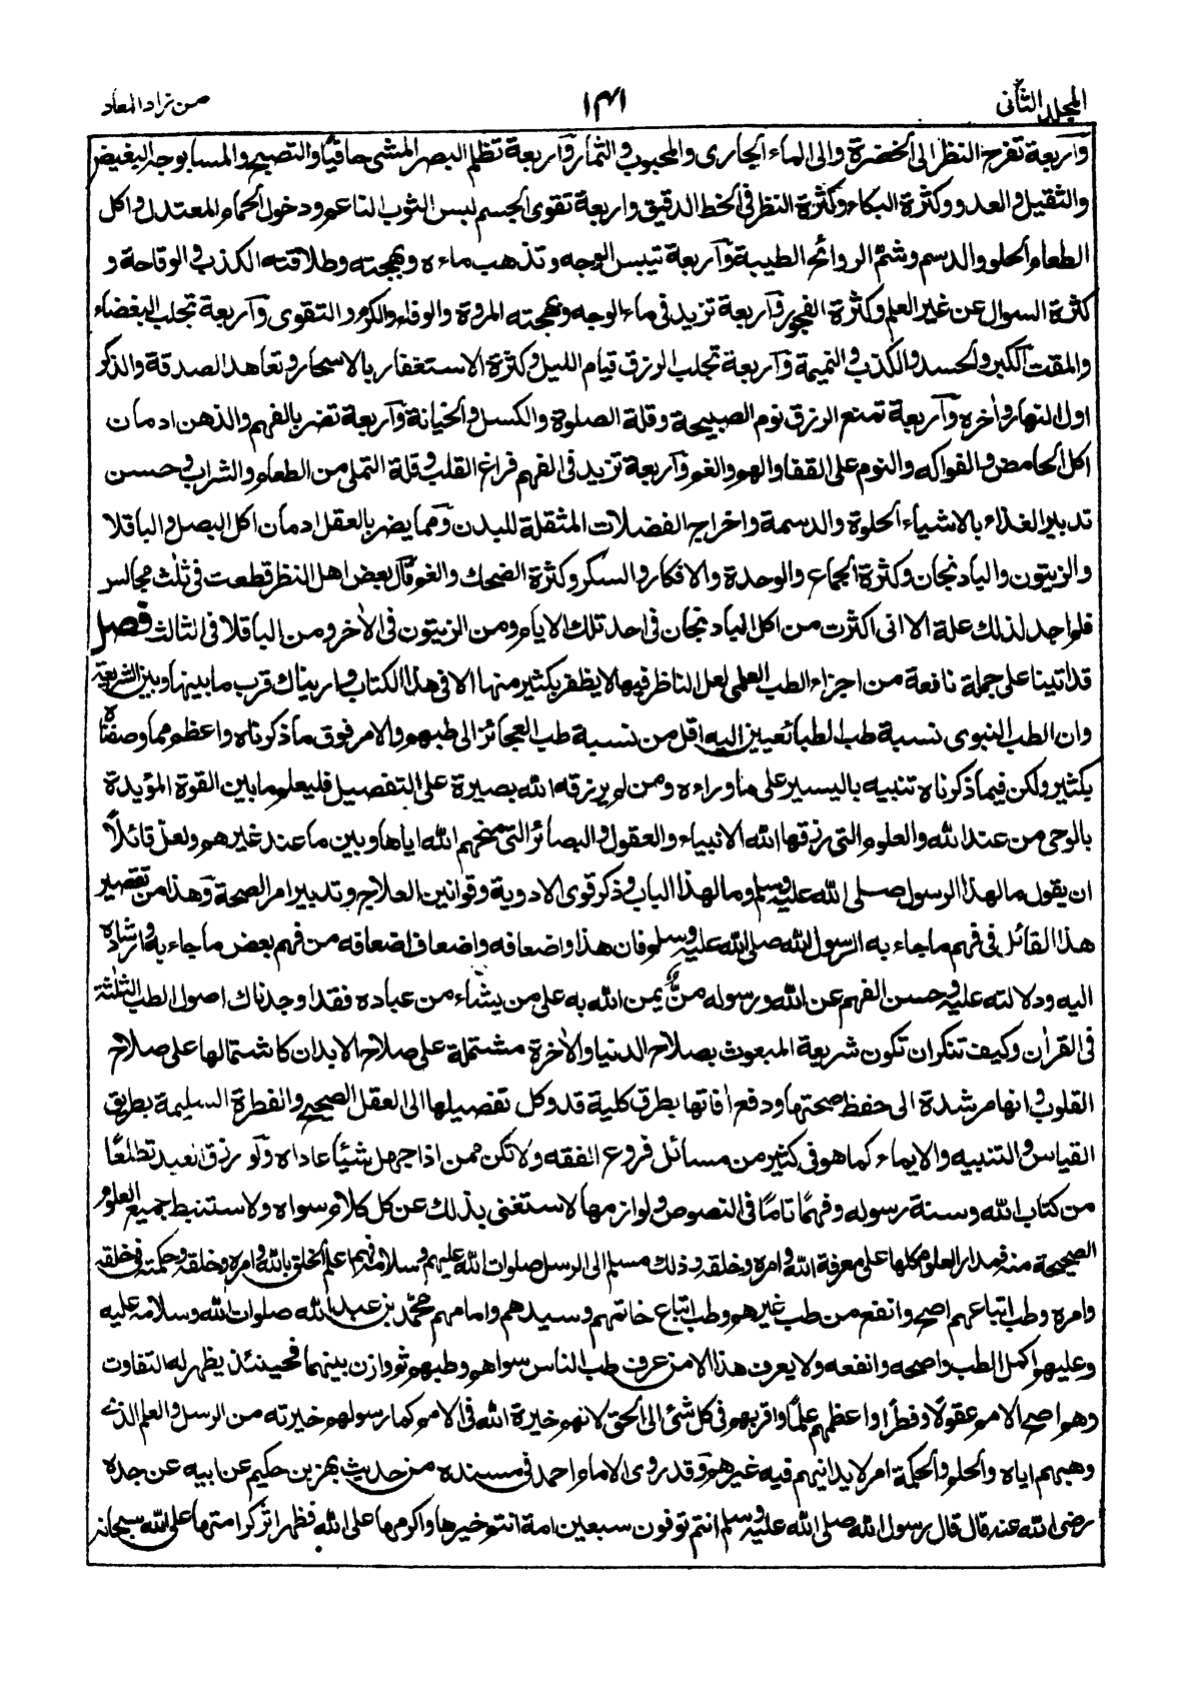 المجلد الثانى
١٣١
من زاد المعاد
وآربعة تفرح النظر الى الخضرة والى الماء الجارى والمحبوب والثمار وآربعة تظلم البصر المشى حافيًا والتصبيح والمسا بوجه البغيض
والثقيل والعدو وكثرة البكاء وكثرة النظر فى الخط الدقيق واربعة تقوى الجسم لبس الثوب الناعم ودخول الحمام المعتدل واكل
الطعام الحلو والدسم وشم الروائح الطيبة وآربعة تيبس الوجه وتذهب ماءه وبهجته وطلاقته الكذب والوقاحة و
كثرة السوال عن غير العلم وكثرة الفجور وآربعة تزيد فى ماء الوجه وبهجته المروة والوفاء والكرم والتقوى وآربعة تجلب البغضاء
والمقت الكبر والحسد والكذب والنميمة وآربعة تجلب الرزق قيام الليل وكثرة الاستغفار بالاسحار وتعاهد الصدقة والذكر
اول النهار واٰخره وآربعة تمنع الرزق نوم الصبيحة وقلة الصلوة والكسل والخيانة وآربعة تضر بالفهم والذهن ادمان
اكل الحامض والفواكه والنوم على القفا والهم والغم وآربعة تزيد فى الفهم فراغ القلب وقلة التملى من الطعام والشراب وحسن
تدبير الغذاء بالاشياء الحلوة والدسمة واخراج الفضلات المثقلة للبدن ومما يضر بالعقل ادمان اكل البصل والباقلا
والزيتون والبادنجان وكثرة الجماع والوحدة والافكار والسكر وكثرة الضحك والغم قآل بعض اهل النظر قطعت فى ثلٰث مجالس
فلم اجد لذلك علة الا انى اكثرت من اكل البادنجان فى احد تلك الايام ومن الزيتون فى الاٰخر ومن الباقلا فى الثالث فصل
قد اتينا على جملة نافعة من اجزاء الطب العلمى لعل الناظر فيها لا يظفر بكثير منها الا فى هذا الكتاب واريناك قرب ما بينها وبين الشريعة
وان الطب النبوى نسبة طب الطبائعيين اليه اقل من نسبة طب العجائز الى طبهم والامر فوق ما ذكرناه واعظم مما وصفناه
بكثير ولكن فيما ذكرناه تنبيه باليسير على ما وراءه ومن لم يرزقه الله بصيرة على التفصيل فليعلم ما بين القوة المؤيدة
بالوحى من عند الله والعلوم التى رزقها الله الانبياء والعقول والبصائر التى منحهم الله اياها وبين ما عند غيرهم ولعل قائلًا
ان يقول ما لهذا الرسول صلى الله عليه وسلم وما لهذا الباب وذكر قوى الادوية وقوانين العلاج وتدبير امر الصحة وهذا من تقصير
هذا القائل فى فهم ما جاء به الرسول الله صلى الله عليه وسلم فان هذا واضعافه واضعاف اضعافه من فهم بعض ما جاء به وارشاده
اليه ودلالته عليه وحسن الفهم عن الله ورسوله منٌّ يمن الله به على من يشاء من عباده فقد اوجدناك اصول الطب الثلٰثة
فى القراٰن وكيف تنكر ان تكون شريعة المبعوث بصلاح الدنيا والاٰخرة مشتملة على صلاح الابدان كاشتمالها على صلاح
القلوب وانها مرشدة الى حفظ صحتها ودفع اٰفاتها بطرق كلية قد وكل تفصيلها الى العقل الصحيح والفطرة السليمة بطريق
القياس والتنبيه والايماء كما هو فى كثير من مسائل فروع الفقه ولا تكن ممن اذا جهل شيئًا عاداه ولو رزق العبد تطلعًا
من كتاب الله وسنة رسوله وفهمًا تامًا فى النصوص ولوازمها لاستغنى بذلك عن كل كلام سواه ولاستنبط جميع العلوم
الصحيحة منه فمدار العلوم كلها على معرفة الله وامره وخلقه وذلك مسلم الى الرسل صلوات الله عليهم وسلامه فهم اعلم الخلق بالله وامره وخلقه وحكمته فى خلقه
وامره وطب اتباعهم اصح وانفع من طب غيرهم وطب اتباع خاتمهم وسيدهم وامامهم محمد بن عبد الله صلوات الله وسلامه عليه
وعليهم اكمل الطب واصحه وانفعه ولا يعرف هذا الا من عرف طب الناس سواهم وطبهم ثم وازن بينهما فحينئذ يظهر له التفاوت
وهم اصح الامم عقولًا وفطرًا واعظمهم علمًا واقربهم فى كل شئ الى الحق لانهم خيرة الله فى الامم كما رسولهم خيرته من الرسل والعلم الذى
وهبهم اياه والحلم والحكمة امر لا يدانيهم فيه غيرهم وقد روى الامام احمد فى مسنده من حديث بهز بن حكيم عن ابيه عن جده
رضى الله عنه قال قال رسول الله صلى الله عليه وسلم انتم توفون سبعين امة انتم خيرها واكرمها على الله فظهر اثر كرامتها على الله سبحانه